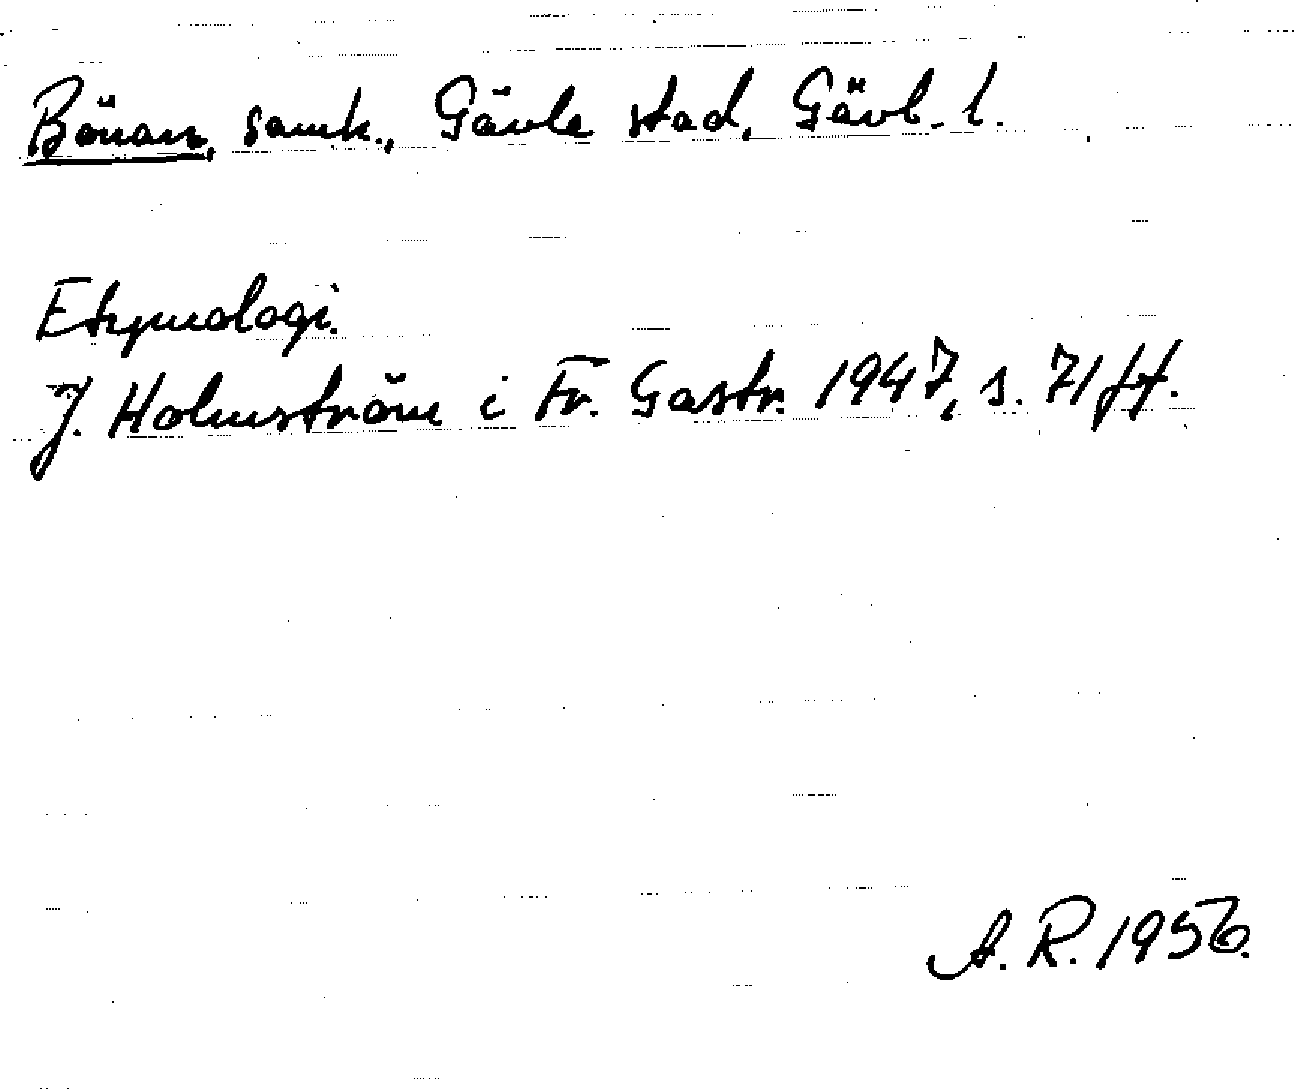 Bönan, samh., Gävle stad, Gävl. l.
Etymologi.
J. Holmström i Fr. Gastr. 1947, s. 71 ff.
A. R. 1956.